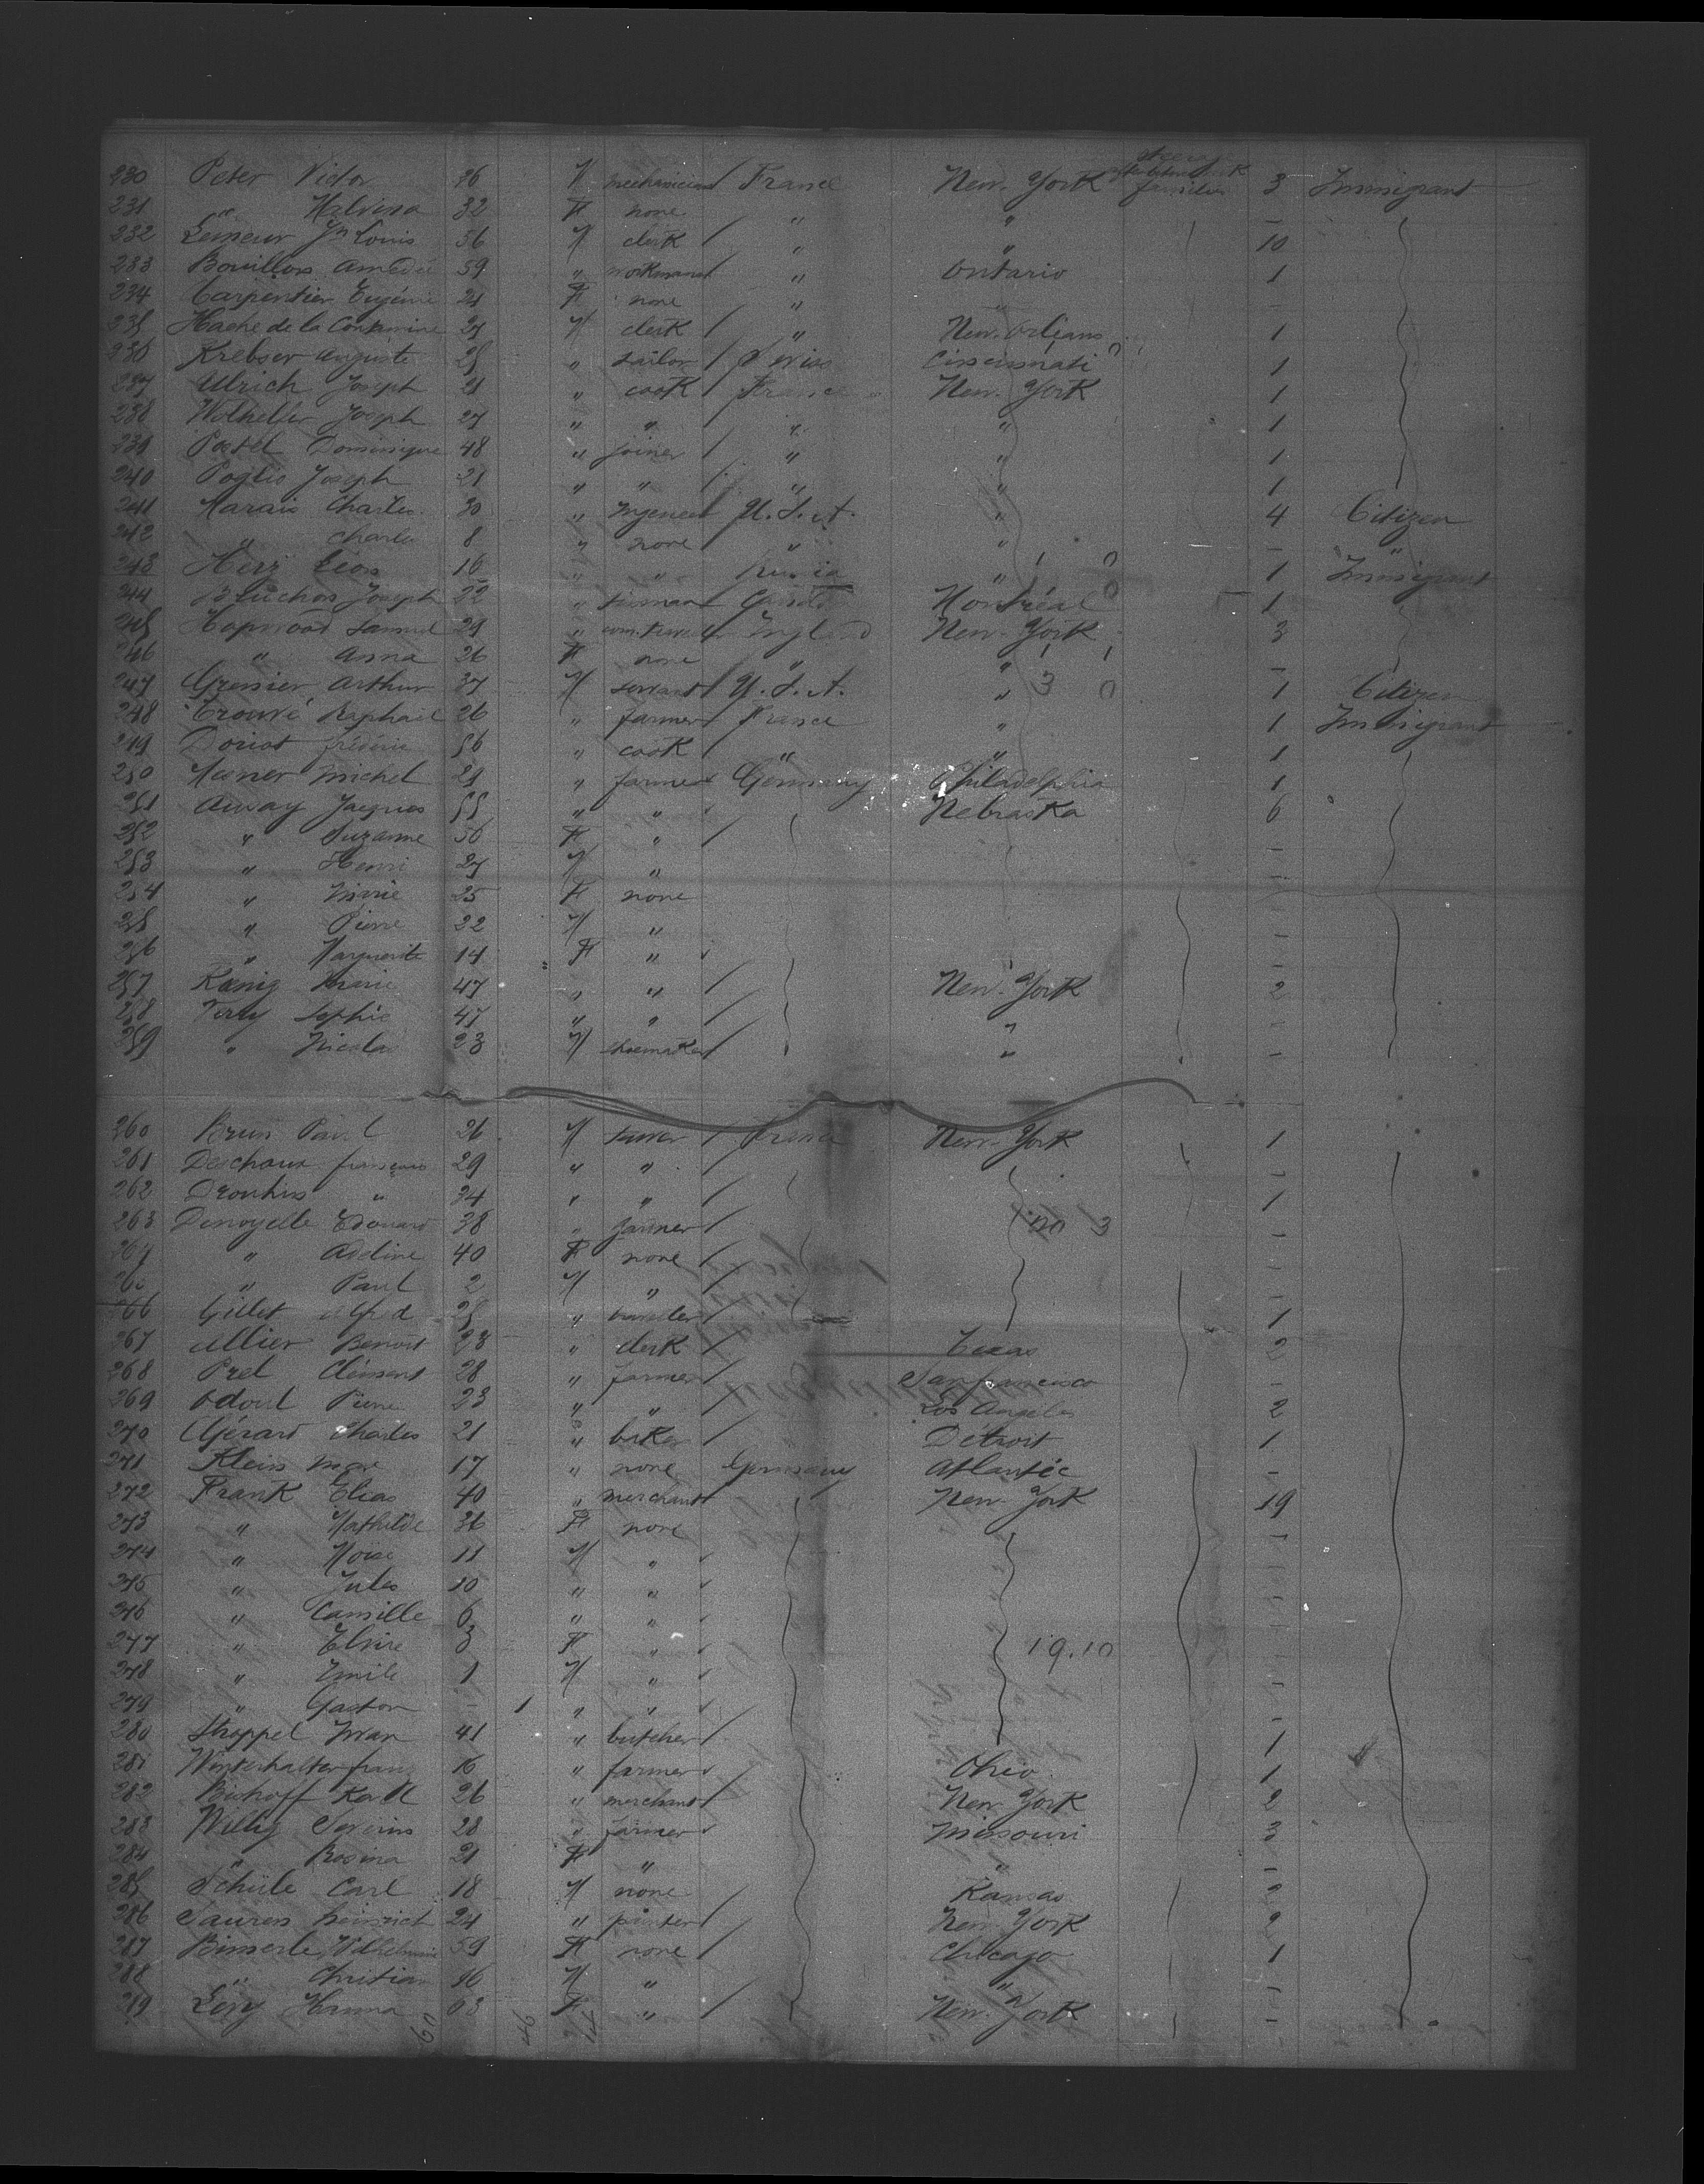 230 Peter Victor 36 M mechanician / France New-York 3 Immigrant
231 " Malvina 32 F none " " -
232 Lemeur Jn Louis 56 M clerk / " " 10
233 Bouillon Amédée 59 " workman " Ontario 1
234 Carpentier Eugénie 24 F none " " -
235 Hache de la Contamine 27 M clerk / " New-Orléans 1
236 Krebser Auguste 25 " tailor / Swiss Cincinnati 1
237 Ulrich Joseph 21 " cook / France New-York 1
238 Wolhelfer Joseph 27 " " / " " 1
239 Postel Dominique 48 " joiner / " " 1
240 Poglio Joseph 21 " " / " " 1
241 Marais Charles 30 " Ingeneer U.S.A. " 4 Citizen
242 " Charles 8 " none / " " - "
243 Herz Léon 16 " " " 1 0 1 Immigrant
244 Joseph 22 " Montréal 0 1
245 Hopwood Samuel 29 " England New-York 3
246 " Anna 26 F none " " 1 1 -
247 Grenier Arthur 37 M servant / U.S.A. " 3 0 1 Citizen
248 Trouvé Raphaël 26 " farmer France " 1 Immigrant
249 Doriot frédéric 56 " cook / " " 1
250 Michel 29 " farmer Germany Philadelphia 1
251 Auvay Jacques 55 " " Nebraska 6
252 " Suzanne 50 F " / -
253 " Henri 27 M " -
254 " Marie 25 F none -
255 " Pierre 22 M " -
256 " Marguerite 14 F " -
257 König Marie 47 " " / New-York 2
258 Terry Sophie 47 " " / " -
259 " Nicolas 23 M shoemaker / " -
260 Brun Paul 26 M / France New-York 1
261 Deschaux françois 29 " " / -
262 " 34 " " / 1
263 Denoyelle Edouard 38 " farmer / no 3 -
264 " Adeline 40 F none / -
" Paul 2 M " / -
266 Gillet Alfred 25 " / 1
267 Allier Benoît 23 " clerk / Texas 2
268 Prel Clément 28 " farmer / Sanfrancisco -
269 Odoul Pierre 23 " " / Los Angeles 2
270 Gérard Charles 21 " baker / Détroit 1
271 Klein Max 17 " none Germany Atlantic -
272 Frank Elias 40 " merchant New-York 19
273 " Mathilde 36 F none -
274 " Moise 11 M " -
275 " Jules 10 " " -
276 " Camille 6 " " -
277 " Elvire 3 F " 19.10 -
278 " Emile 1 M " -
279 " Gaston - 1 " " -
280 Stoppel Iwan 41 " butcher / 1
281 Winterhalter franz 16 " farmer Ohio 1
282 Bishoff Karl 26 " merchant / New York 2
283 Willig Severins 28 " farmer Missouri 3
284 " Rosina 21 F " " -
285 Schüle Carl 18 M none Kansas
286 Sauren heinrich 24 " / New-York 2
287 Wilhelmine 59 F none / Chicago 1
288 " Christian 16 M " " -
289 Levy Hanna 63 F " / New-York -